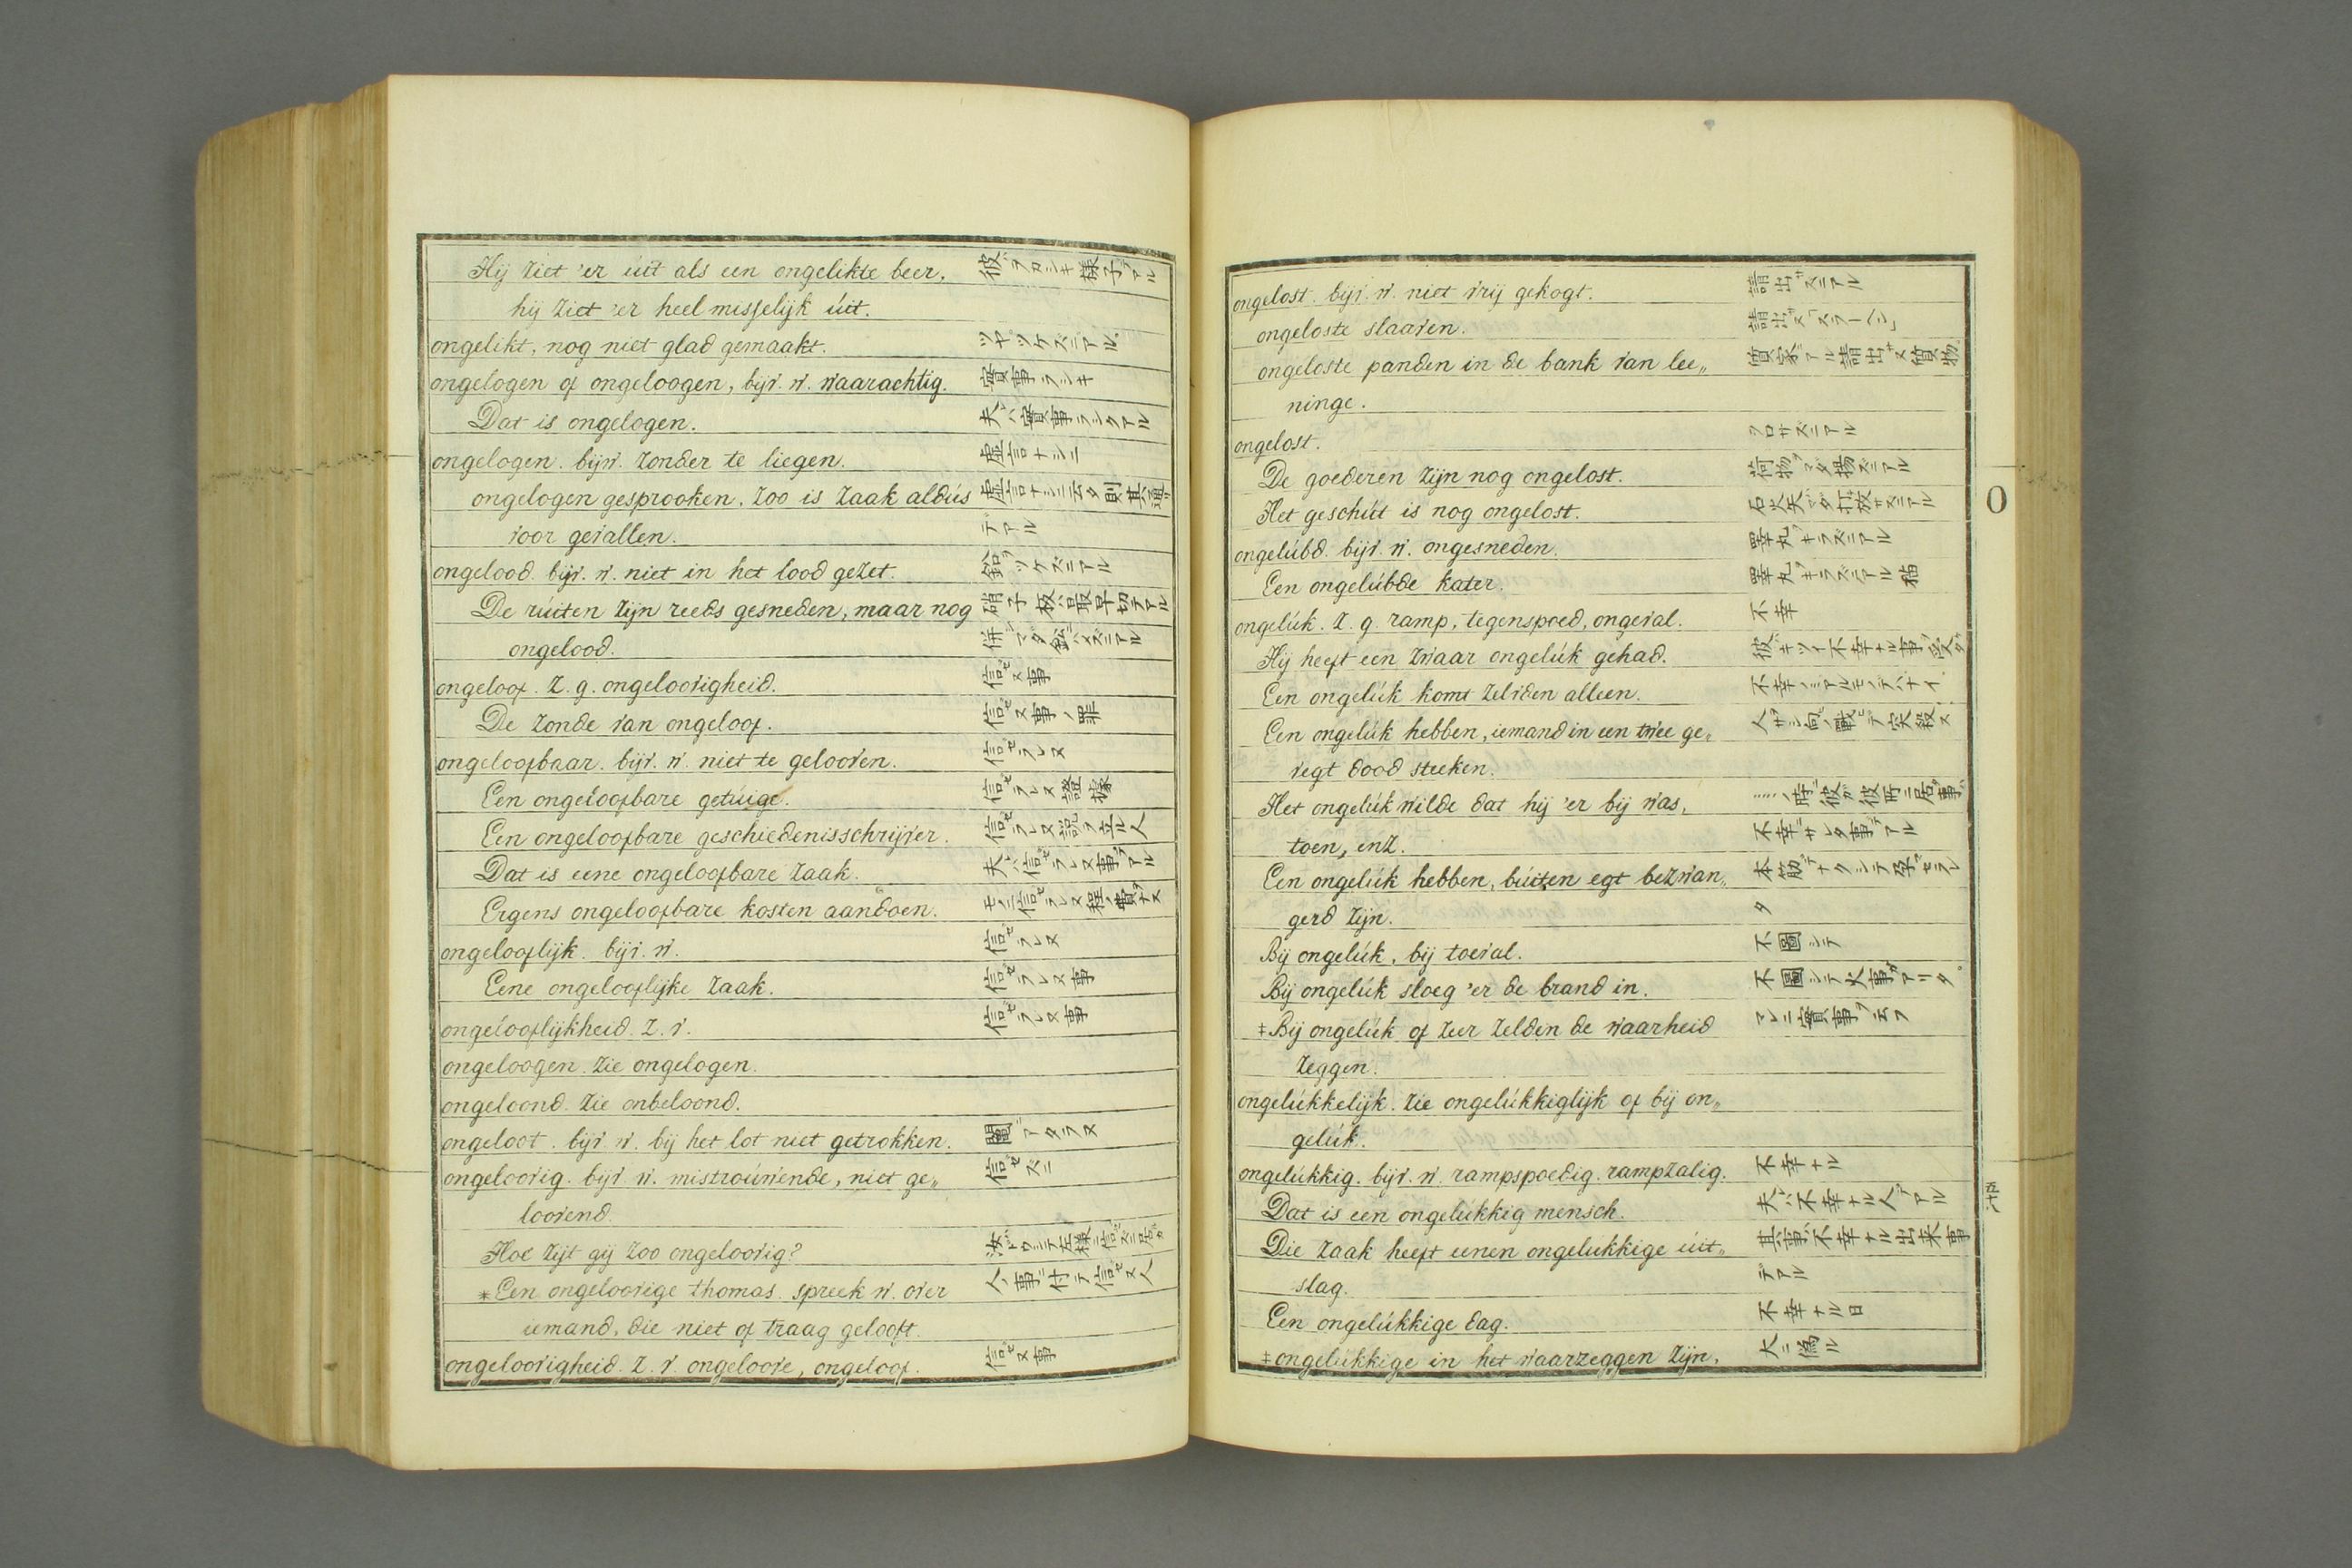 Hij ziet 'er úit als een ongelikte beer,
hij ziet 'er heel misselijk úit.
ongelikt, nog niet glad gemaakt. ツヤツケズニアル
ongelogen of ongeloogen, bijv. w. waarachtig. 實事ラシキ
Dat is ongelogen. 夫レハ實事ラシクアル
ongelogen. bijw. zonder te liegen. 虚言ナシニ
ongelogen gesprooken. zoo is zaak aldús
voor gevallen. デアル
ongelood. bijv. w. niet in het lood gezet. 鉛ヲツケズニアル
De rúiten zijn reeds gesneden, maar nog
ongelood.
ongeloof. z. g. ongeloovigheid. 信ゼヌ事
De zonde van ongeloof. 信ゼヌ事ノ罪
ongeloofbaar. bijv. w. niet te gelooven. 信ゼラレヌ
Een ongeloofbare getúige. 信ゼラレヌ證據
Een ongeloofbare geschiedenisschrijver. 信ゼラレヌ説ヲ立ル人
Dat is eene ongeloofbare zaak. 夫レハ信ゼラレヌ事デアル
Ergens ongeloofbare kosten aandoen.
ongelooflijk. bijv. w. 信ゼラレヌ
Eene ongelooflijke zaak. 信ゼラレヌ事
ongelooflijkheid. z. v. 信ゼラレヌ事
ongeloogen. zie ongelogen.
ongeloond. zie onbeloond.
ongeloot. bijv. w. bij het lot niet getrokken. 鬮ニアタラヌ
ongeloovig. bijv. w. mistroúwende, niet ge„ 信ゼズニ
loovend.
Hoe zijt gij zoo ongeloovig?
*Een ongeloovige thomas. spreek w. over 人ノ事ニ付テ信ゼヌ人
iemand, die niet of traag gelooft.
ongeloovigheid. z. v. ongeloove, ongeloof. 信ゼヌ事
ongelost. bijv. w. niet vrij gekogt. 請出サズニアル
ongeloste slaaven.
ongeloste panden in de bank van lee„
ninge.
ongelost.
De goederen zijn nog ongelost. 荷物ヲマダ揚ズニアル
Het geschút is nog ongelost.
ongelúbd. bijv. w. ongesneden. 睾丸ヲキラズニアル
Een ongelúbde kater. 睾丸ヲキラズニアル猫
ongelúk. z. g. ramp, tegenspoed, ongeval. 不幸
Hij heeft een zwaar ongelúk gehad.
Een ongelúk komt zelvden alleen.
Een ongelúk hebben, iemand in een twee ge„
vegt dood steeken.
Het ongelúk wilde dat hij 'er bij was,
toen, enz.
Een ongelúk hebben, búiten egt bezwan„ 本筋デナクシテ孕セラレ
gerd zijn. タ
Bij ongelúk, bij toeval. 不圖シテ
Bij ongelúk sloeg 'er de brand in. 不圖シテ火事ガアリタ
‡Bij ongelúk of zeer zelden de waarheid マレニ實事ヲ云フ
zeggen.
ongelúkkelijk. zie ongelúkkiglijk of bij on„
gelúk.
ongelúkkig. bijv. w. rampspoedig. rampzalig. 不幸ナル
Dat is een ongelúkkig mensch. 夫レハ不幸ナル人デアル
Die zaak heeft eenen ongelukkige uit„ 其事ハ不幸ナル出来事
slag. デアル
Een ongelúkkige dag. 不幸ナル日
‡ongelúkkige in het waarzeggen zijn, 大ニ偽ル
O